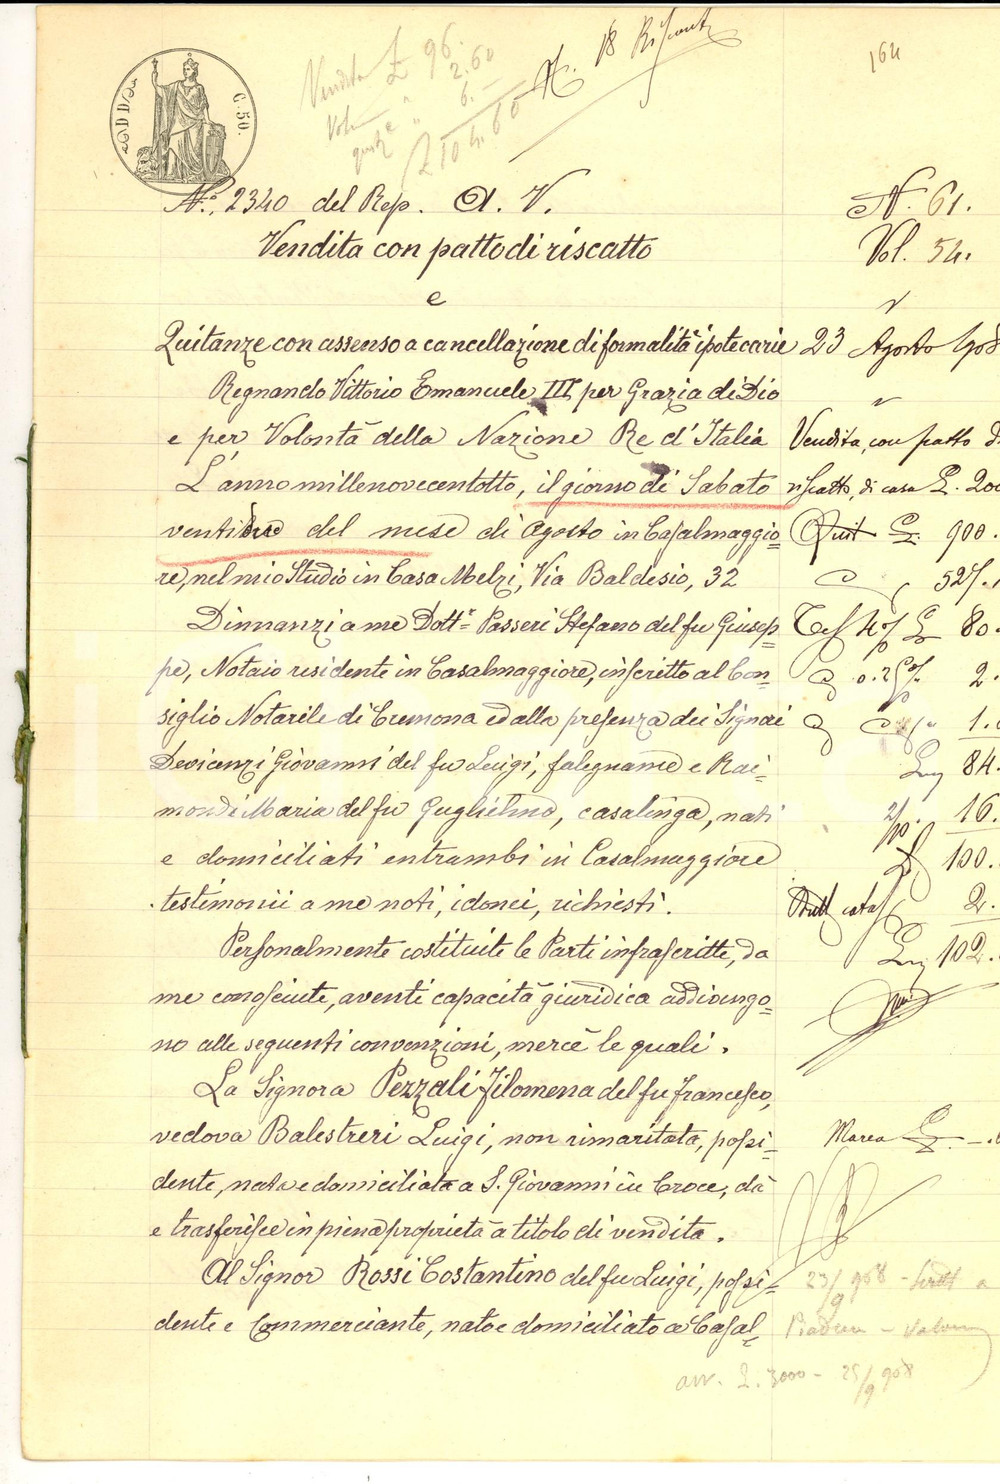 164
18 Riscont
Vendita £ 96.
Vol. " 2.60
6.
£ 104.60
C. 50.
N.° 2340 del Rep. A. V.
Vendita con patto di riscatto
e
Quitanze con assenso a cancellazione di formalità ipotecarie
Regnando Vittorio Emanuele III per Grazia di Dio
e per Volontà della Nazione Re d'Italia
L'anno millenovecentotto, il giorno di Sabato
ventidue del mese di Agosto in Casalmaggio=
re, nel mio Studio in Casa Melzi, Via Baldesio, 32
Dinnanzi a me Dott.r Passeri Stefano del fu Giusep=
pe, Notaio residente in Casalmaggiore, inscritto al Con=
siglio Notarile di Cremona ed alla presenza dei Signori
Devicenzi Giovanni del fu Luigi, falegname e Rai=
mondi Maria del fu Guglielmo, casalinga, nati
e domiciliati entrambi in Casalmaggiore
testimonii a me noti, idonei, richiesti.
Personalmente costituite le Parti infrascritte, da
me conosciute, aventi capacità giuridica addivengo=
no alle seguenti convenzioni, mercè le quali.
La Signora Pezzali Filomena del fu Francesco,
vedova Balestreri Luigi, non rimaritata, possi=
dente, nata e domiciliata a S. Giovanni in Croce, dà
e trasferisce in piena proprietà a titolo di vendita.
Al Signor Rossi Costantino del fu Luigi, possi=
dente e Commerciante, nato e domiciliato a Casal=
N. 61.
Vol. 54.
23 Agosto 908
Vendita, con patto di
riscatto, di casa £. 200
Quit £ 900.
527.
Tas 4% £ 80.
0.25% 2.
1.
84.
2/10 16.
£ 100.
2.
102.
Marca £
23/9 908
avv. £. 3000 - 25/9 908